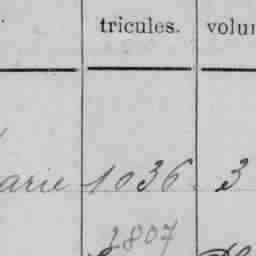 tricules. volu
arie 1036 3
1807